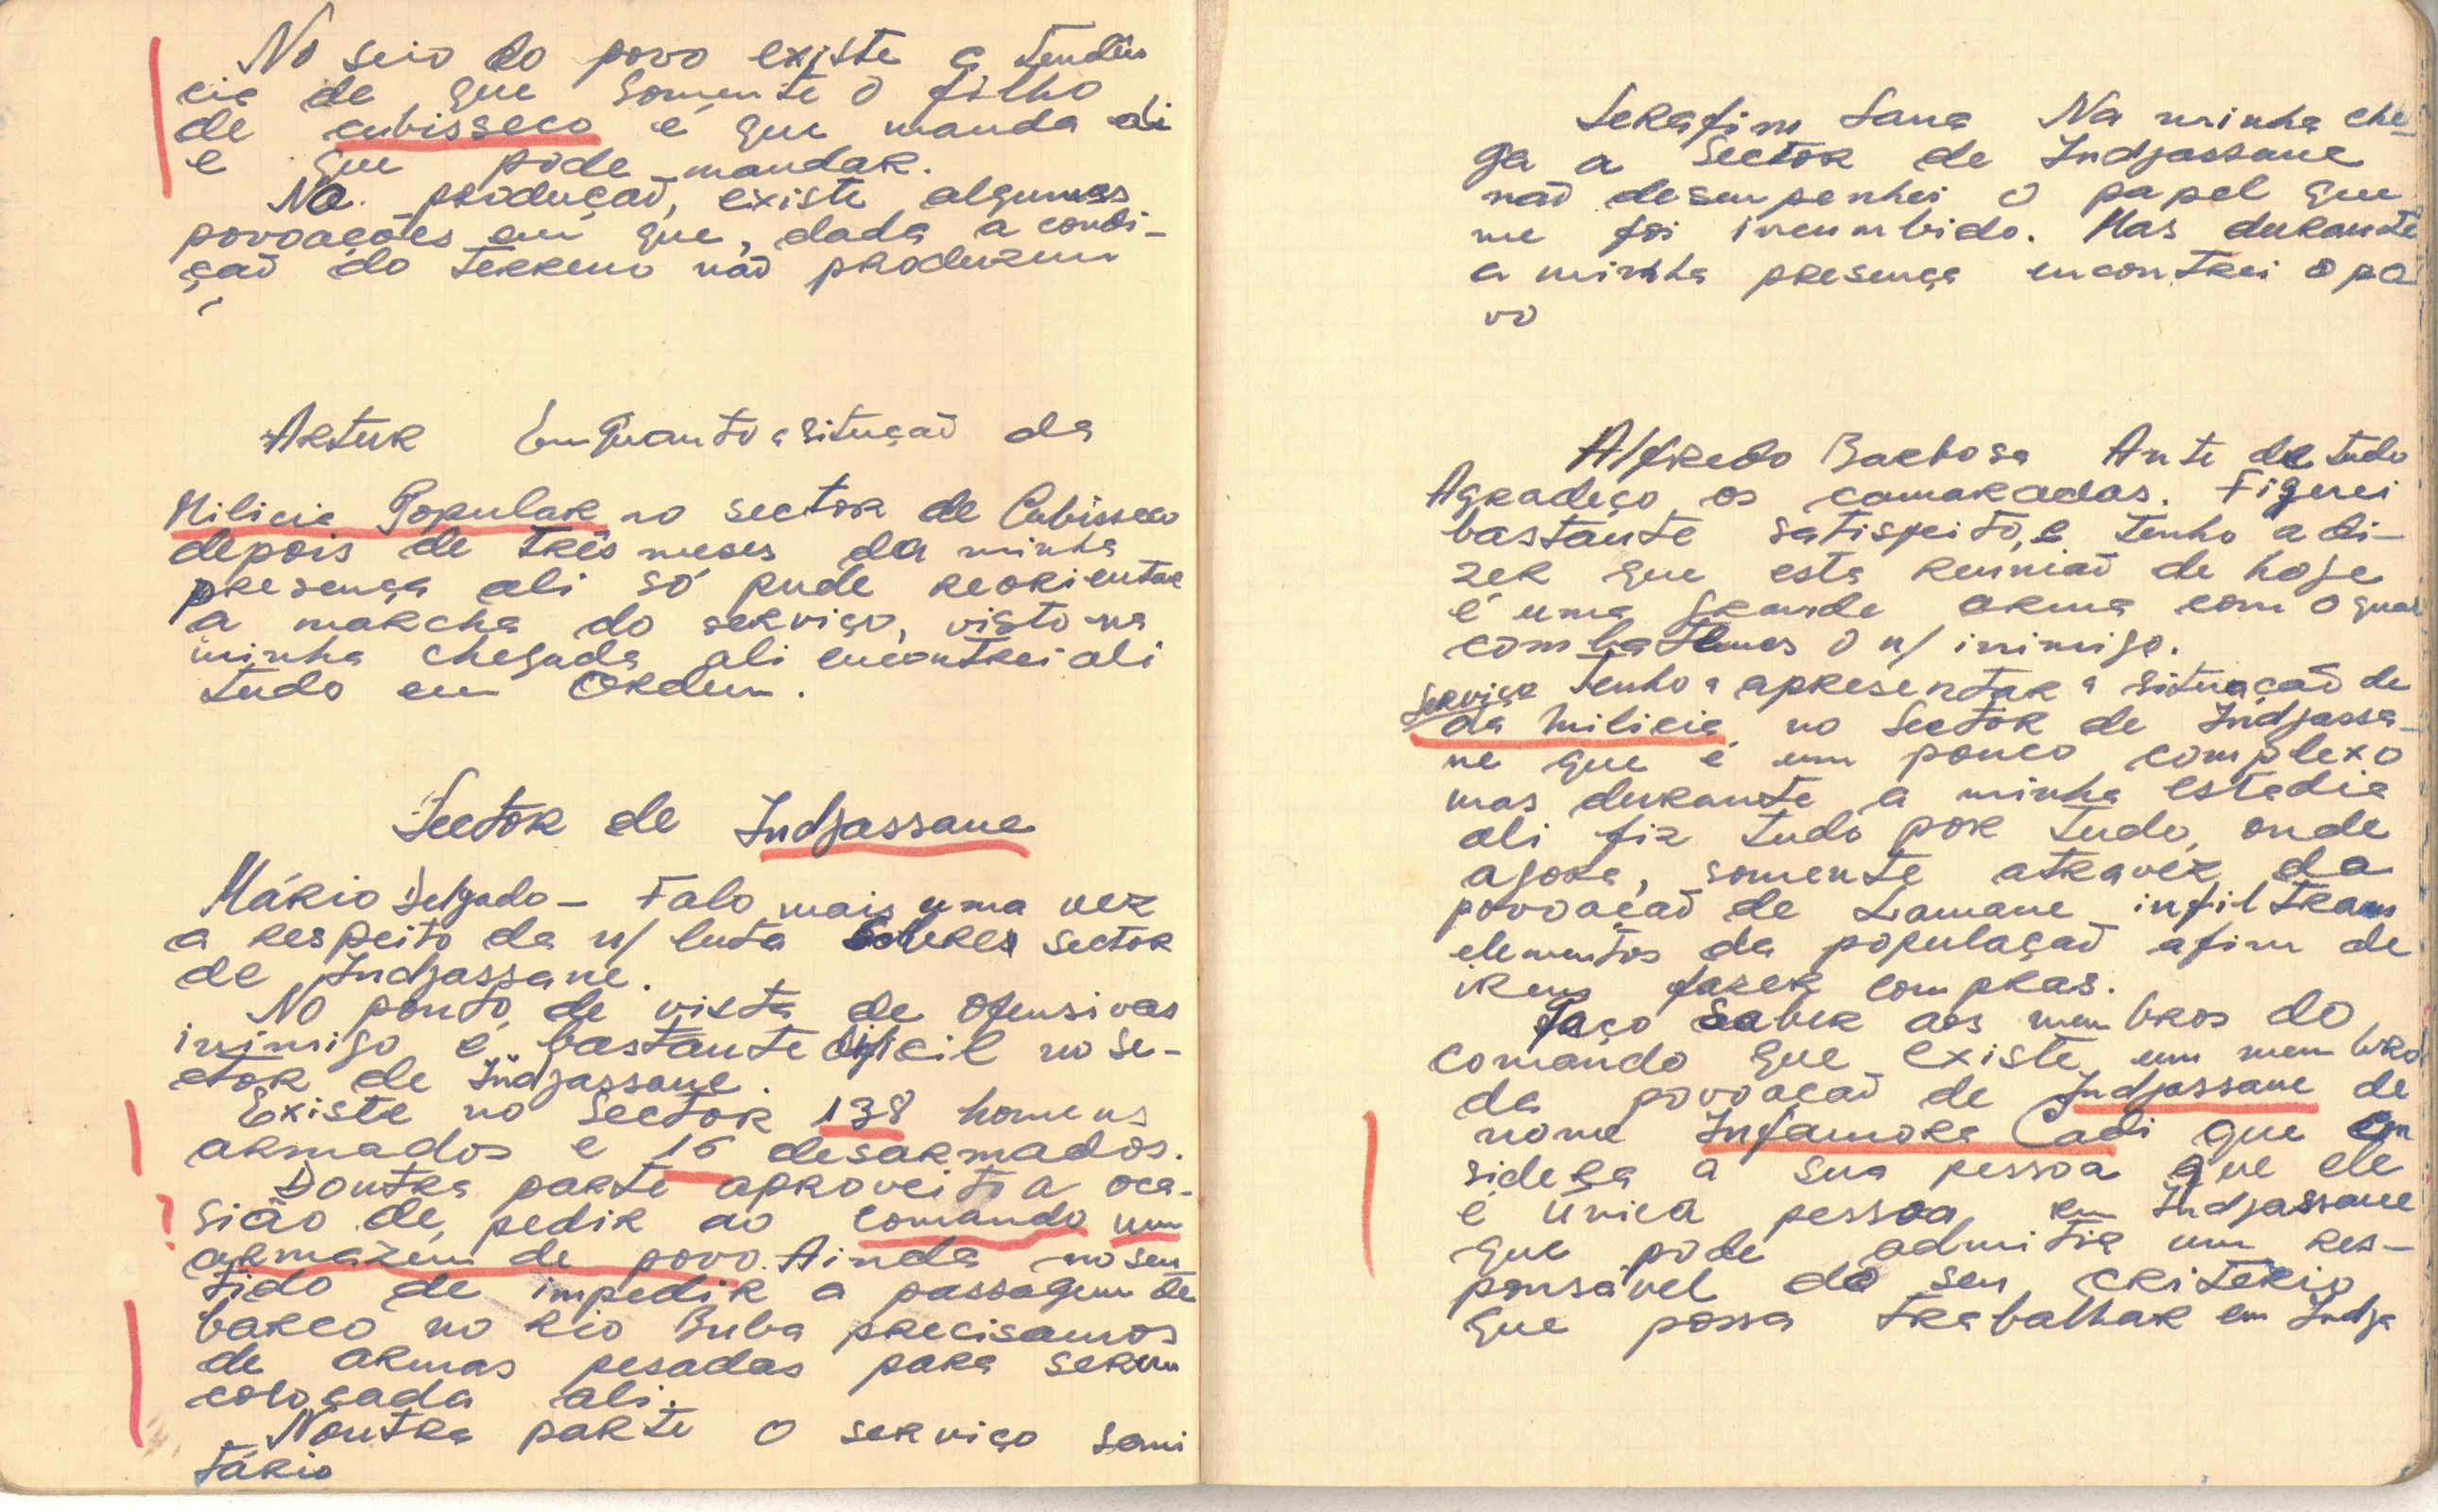 No seio do povo existe a tendên
cia de que somente o filho
de cubisseco é que manda ali
e que pode mandar.
Na produção, existe algumas
povoações em que, dada a condi-
ção do terreno não produzem
Artur Enquanto a situção da
Milicia Popular no sector de Cubisseco
depois de três meses da minha
presença ali só pude reorientar
a marcha do serviço, visto na
minha chegada ali encontrei ali
tudo em Ordem.
Sector de Indjassane
Mário Delgado - Falo mais uma vez
a respeito da n/ luta sector
de Indjassane.
No ponto de vista de Ofensivas
inimigo é bastante dificil no se-
ctor de Indjassane.
Existe no Sector 138 homens
armados e 16 desarmados.
Doutra parte aproveito a oca-
sião de pedir ao comando um
armazem de povo. Ainda no sen
tido de impedir a passagem de
barco no Rio Buba precisamos
de armas pesadas para serem
colocada ali.
Noutra parte o serviço sani
tário
Serafim Sana Na minha che-
ga a Sector de Indjassane
não desempenhei o papel que
me foi incumbido. Mas durante
a minha presença encontrei o po
vo
Alfredo Barbosa Ante de tudo
Agradeço os camaradas. Figuei
bastante satisfeito, e tenho a di-
zer que esta reunião de hoje
é uma grande arma com o qual
combatemos o n/ inimigo.
Tenho a apresentar a situação de
serviço da milicia no Sector de Indjassa-
ne que é um pouco complexo
mas durante a minha estadia
ali fiz tudo por tudo, onde
agora, somente atravez da
povoação de Lamane infiltram
elementos da população afim de
irem fazer compras.
Faço saber aos membros do
comando que existe um membro
da povoação de Indjassane de
nome Infamora Cadi que con
sidera a sua pessoa que ele
é única pessoa em Indjassane
que pode admitir um res-
ponsável do seu criterio
que possa trabalhar em Indja